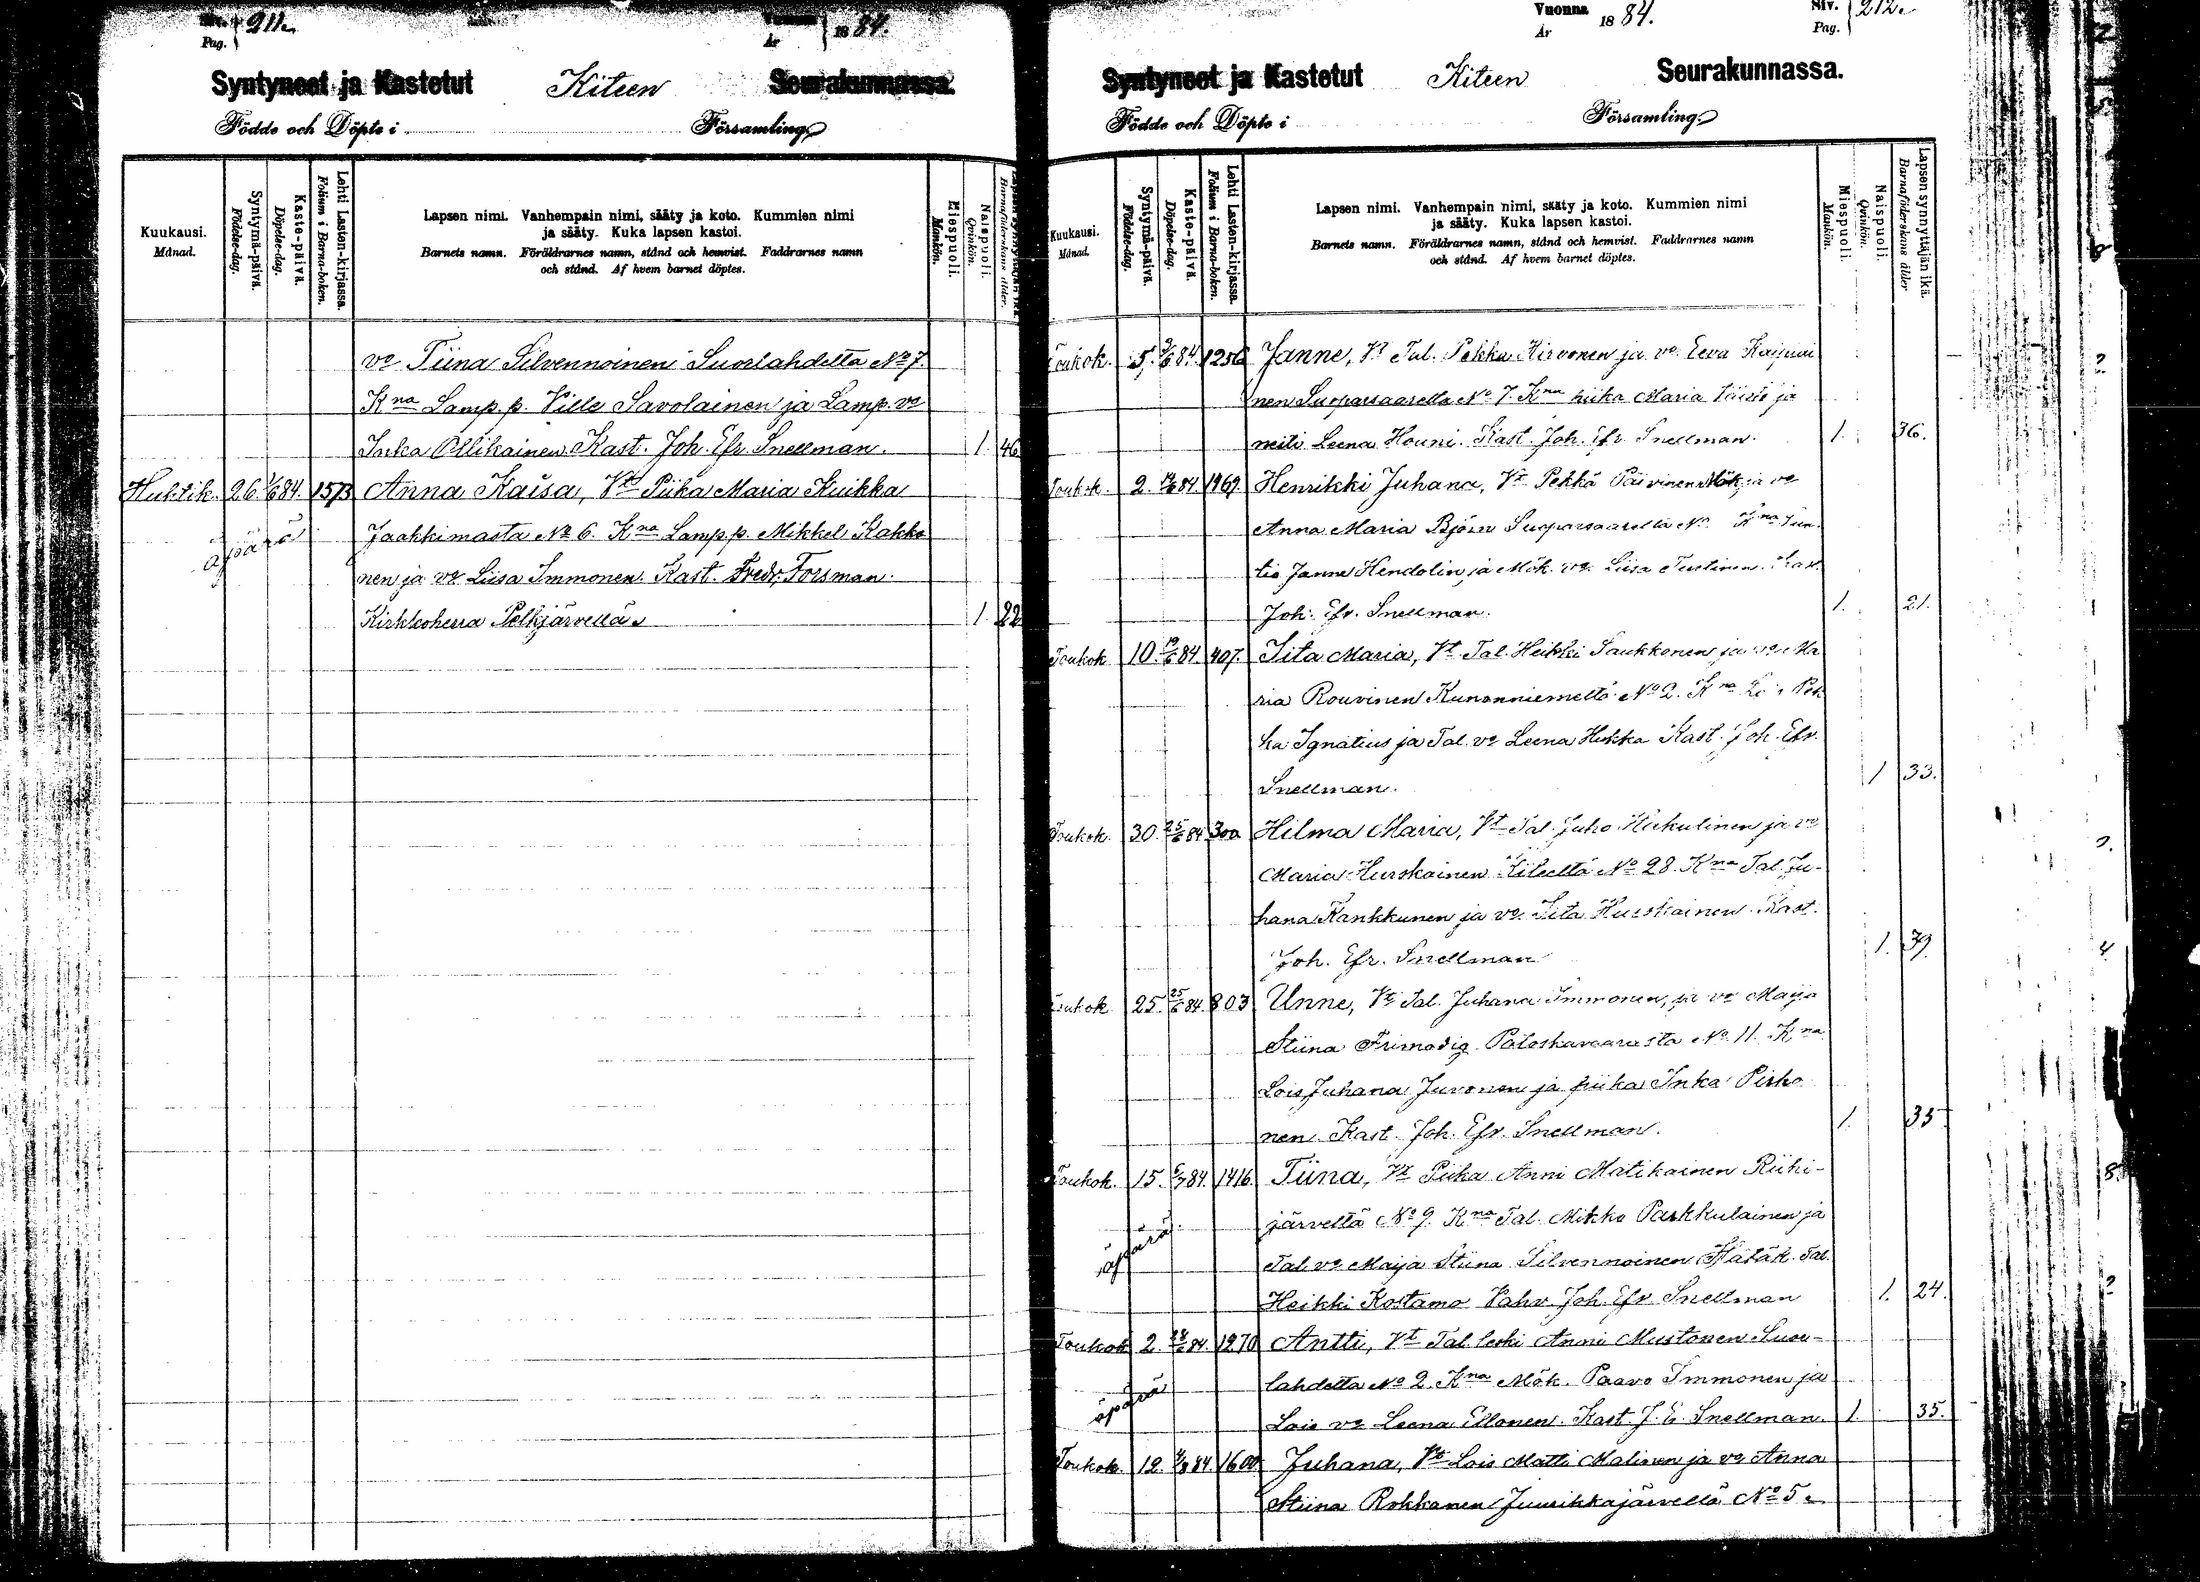 Siv. Pag. 211.
Vuonna År 1884.
Syntyneet ja Kastetut Kiteen Seurakunnassa.
Födde och Döpte i Församling.
Kuukausi. Månad.
Syntymä-päivä. Födelse-dag.
Kaste-päivä. Döpelse-dag.
Lehti Lasten-kirjassa. Folium i Barna-boken.
Lapsen nimi. Vanhempain nimi, sääty ja koto. Kummien nimi
ja sääty. Kuka lapsen kastoi.
Barnets namn. Föräldrarnes namn, stånd och hemvist. Faddrarnes namn
och stånd. Af hvem barnet döptes.
Miespuoli. Mankön.
Naispuoli. Qvinkön.
Lapsen synnyttäjän ikä. Barnaföderskans ålder.
vo Tiina Silvennoinen Suorlahdelta No 7.
Kna Lamp. p. Ville Savolainen ja Lamp. vo
Inka Ollikainen Kast. Joh. Efr. Snellman. 1. 46
Huhtik. 26. 84. 1573 Anna Kaisa, Vt Piika Maria Kuikka
äpärä Jaakkimasta No 6. Kna Lamp p. Mikkel Kakko
nen ja vo Liisa Immonen. Kast. Fredr. Forsman.
Kirkkoherra Pelkjärvellä. 1. 22
Vuonna År 1884.
Siv. Pag. 212.
Syntyneet ja Kastetut Kiteen Seurakunnassa.
Födde och Döpte i Församling.
Kuukausi. Månad.
Syntymä-päivä. Födelse-dag.
Kaste-päivä. Döpelse-dag.
Lehti Lasten-kirjassa. Folium i Barna-boken.
Lapsen nimi. Vanhempain nimi, sääty ja koto. Kummien nimi
ja sääty. Kuka lapsen kastoi.
Barnets namn. Föräldrarnes namn, stånd och hemvist. Faddrarnes namn
och stånd. Af hvem barnet döptes.
Miespuoli. Mankön.
Naispuoli. Qvinkön.
Lapsen synnyttäjän ikä. Barnaföderskans ålder
Toukok. 5. 84. 1256 Janne, Vt Tal. Pekka Hirvonen ja vo Eeva
nen Suoparsaarella No 7. Kna piika Maria ja
neiti Leena Houni. Kast. Joh. Efr. Snellman. 1. 36.
Toukok. 2. 84. 1969. Henrikki Juhana, Vt Pekka Päivinen Mök. ja vo
Anna Maria Björn Suoparsaarella No Kna Sun
tio Janne Hendolin ja Mök. vo Liisa Kast.
Joh. Efr. Snellman. 1. 21.
Toukok 10. 19/6 84. 407. Iita Maria, Vt Tal. Heikki Saukkonen ja vo Ma
ria Rouvinen Kunonniemeltä No 2. Kna Pek
ka Ignatius ja Tal. vo Leena Hukka Kast. Joh. Efr.
Snellman. 1 33.
Toukok. 30. 25/6 84 300 Hilma Maria, Vt Tal. Juho Hukulinen ja vo
Maria Hurskainen Kiteeltä No 28. Kna Tal. Ju-
hana Kankkunen ja vo Iita Hurskainen Kast.
Joh. Efr. Snellman 1. 39.
Toukok 25. 25/6 84. 803 Unne, Vt Tal. Juhana Immonen, ja vo Maija
Stiina Frimodig Potoskavaarasta No 11. Kna
Lois Juhana Juvonen ja piika Inka Pisko
nen. Kast. Joh. Efr. Snellman. 1. 35
Toukok. 15. 84. 1416. Tiina, Vt Piika Anni Matikainen Riihi-
äpärä järveltä No 9. Kna Tal. Mikko Parkkulainen ja
Tal. vo Maija Stiina Silvennoinen Hätäk. Tal.
Heikki Kostamo Vahv. Joh. Efr. Snellman 1. 24.
Toukok 2. 84. 1270 Antti, Vt Tal. leski Anni Mustonen Suor-
äpärä lahdelta No 2. Kna Mök. Paavo Immonen ja
Lois vo Leena Ellonen. Kast. J. E. Snellman. 1. 35.
Toukok. 12. 84 1600 Juhana, Vt Lois Matti Malinen ja vo Anna
Stiina Rokkanen Juurikkajärvellä No 5.